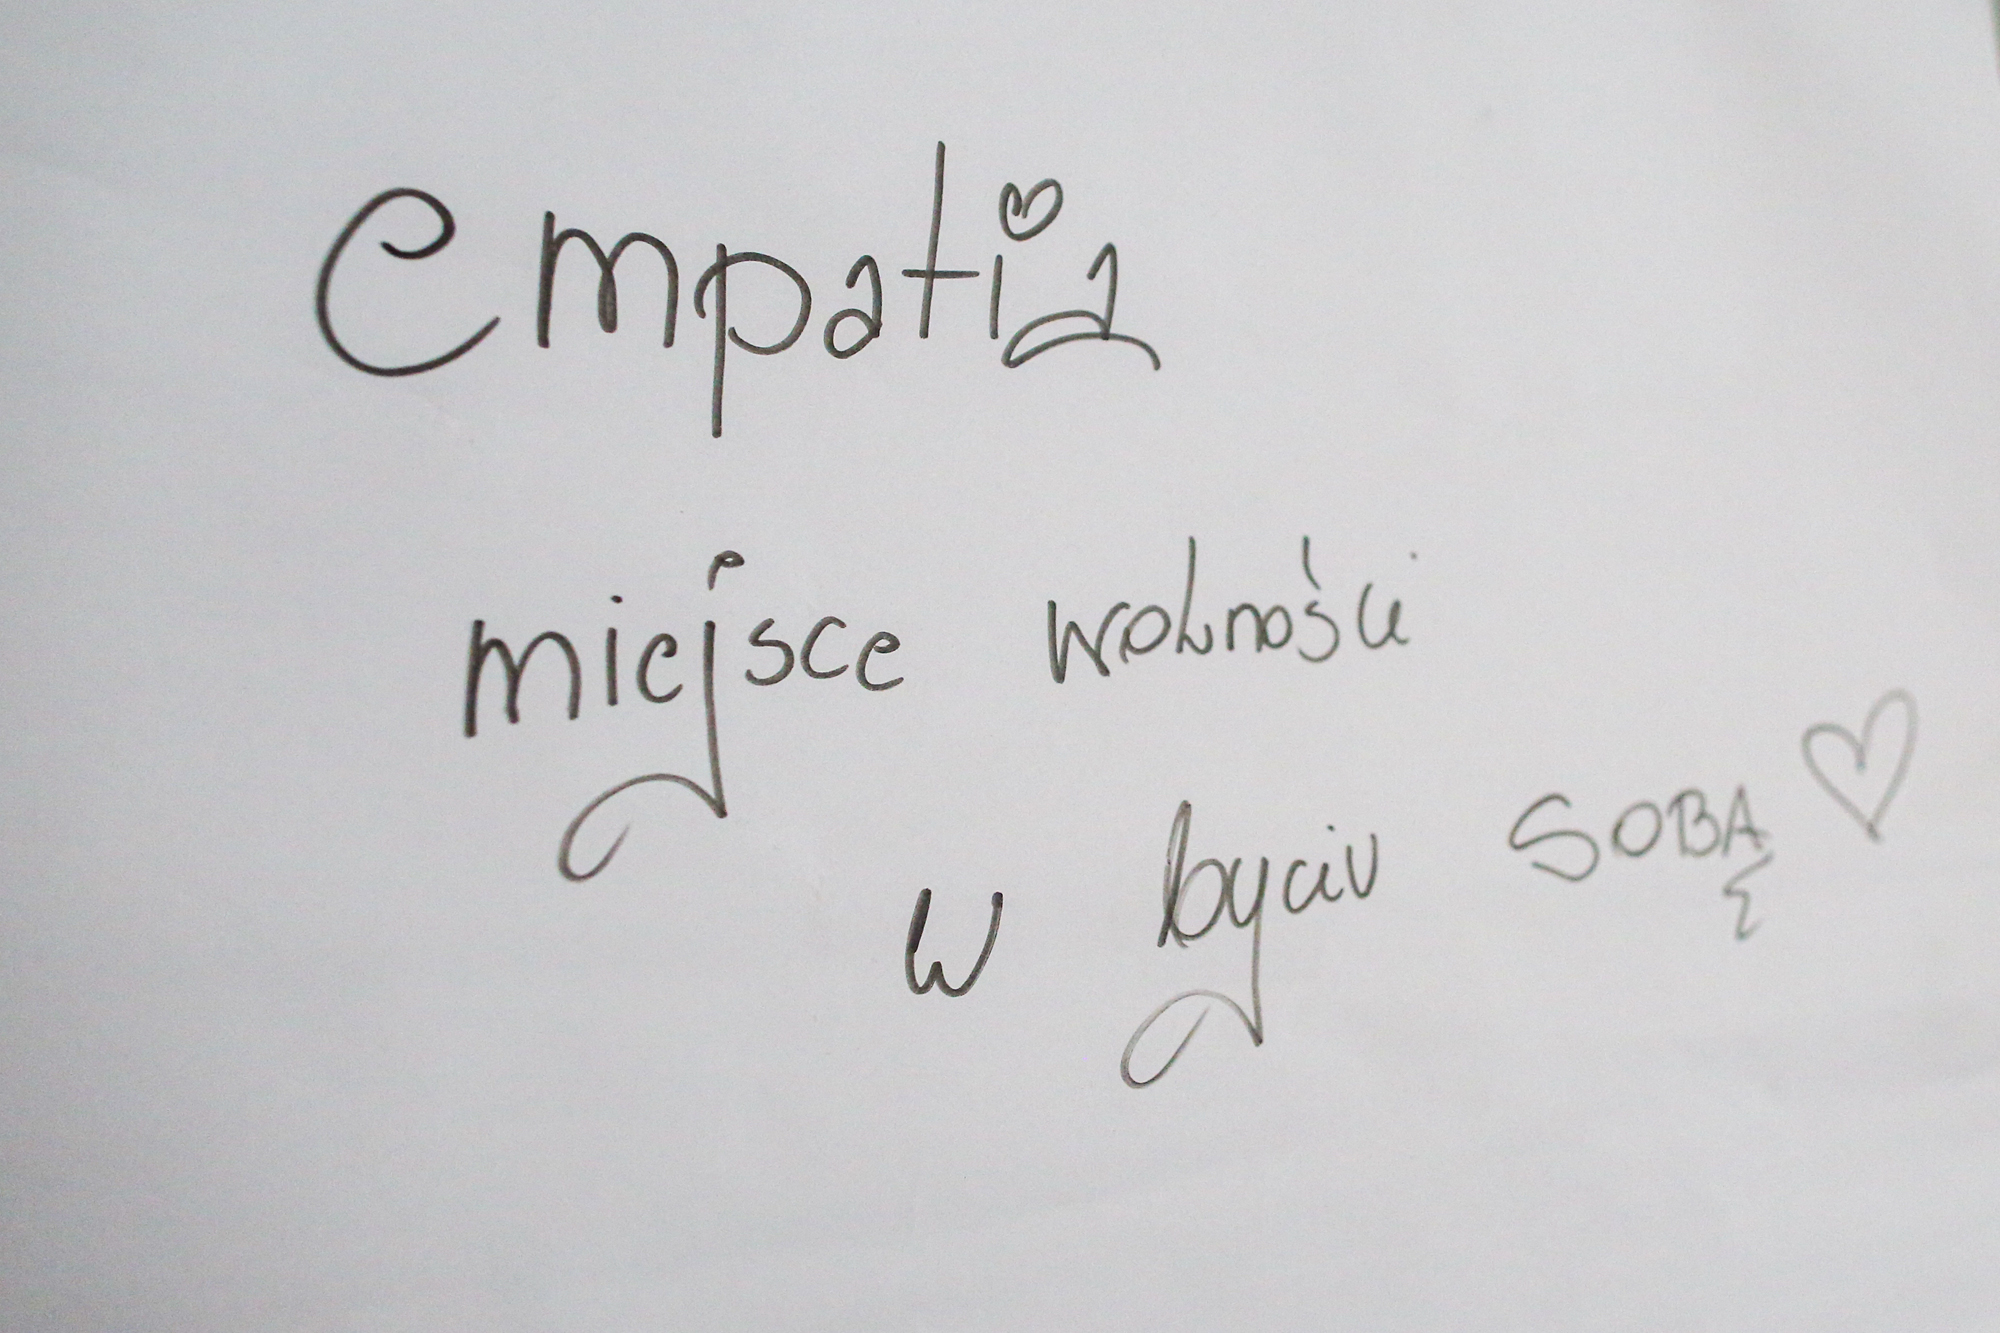 empatia
miejsce wolności
w byciu SOBĄ